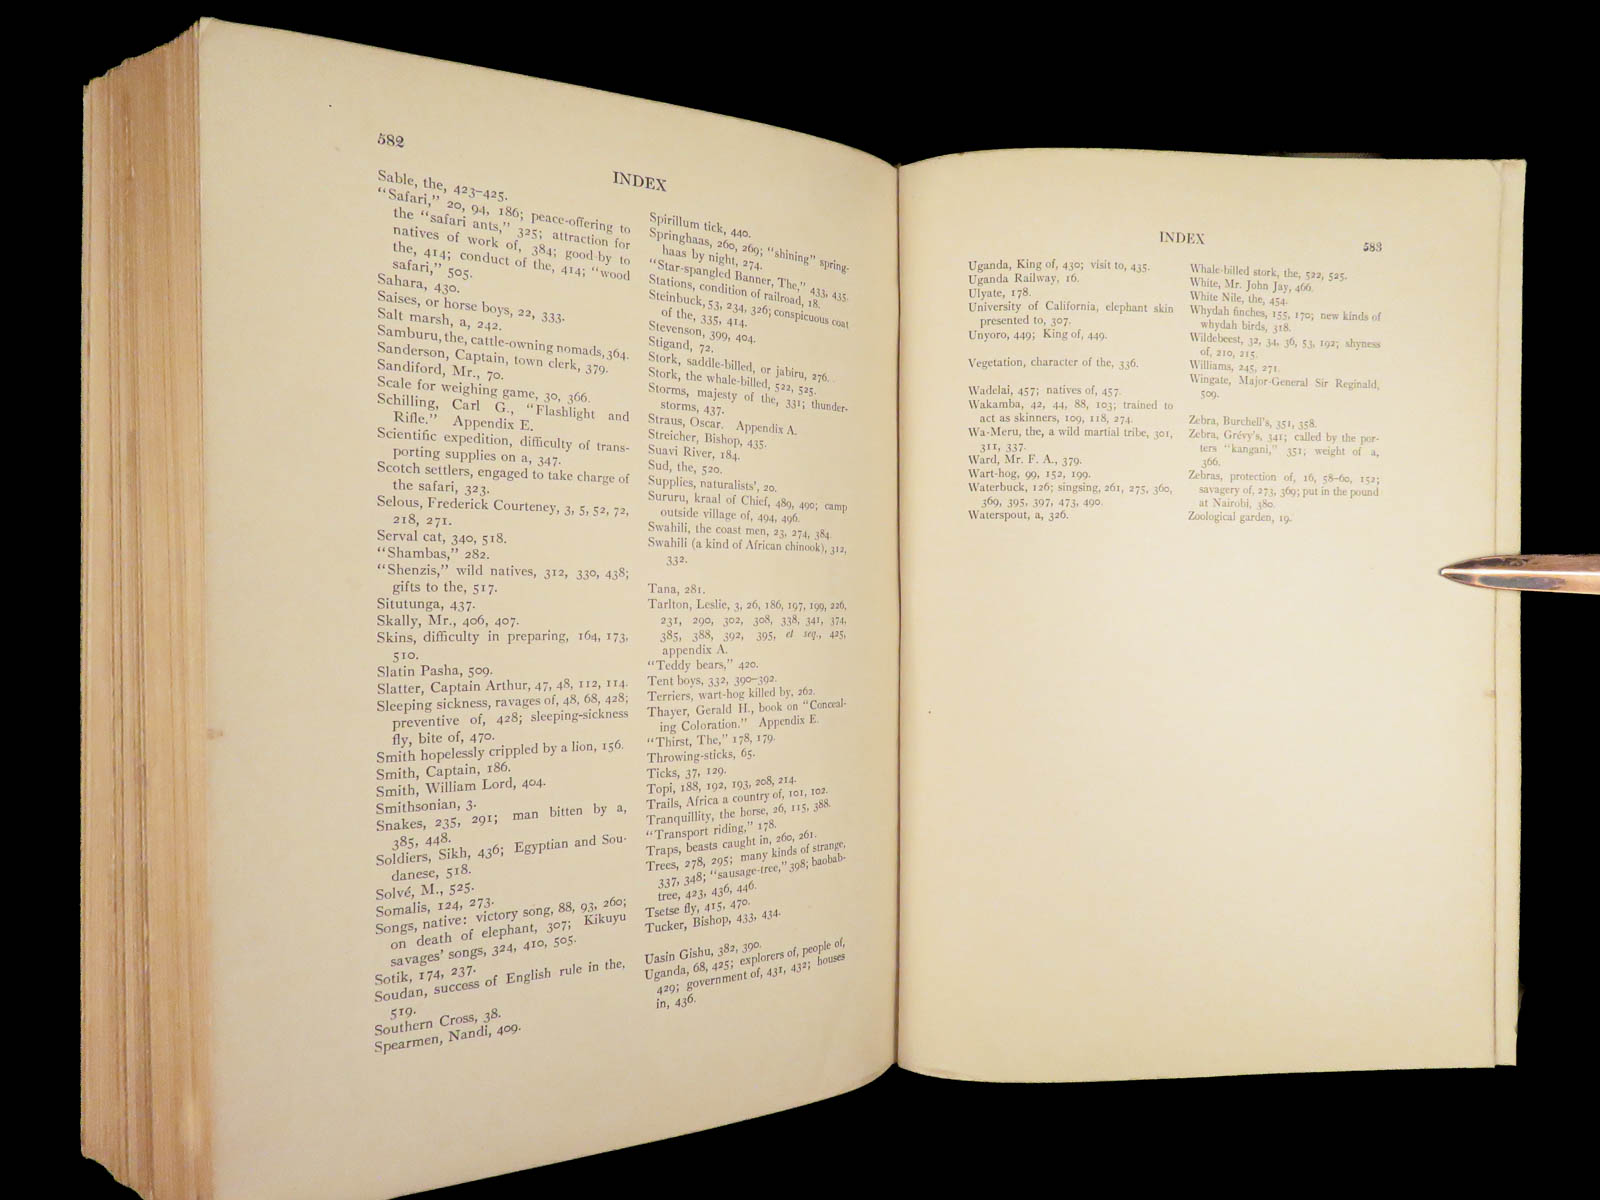 582
INDEX
Sable, the, 423–425.
"Safari," 20, 94, 186; peace-offering to
the "safari ants," 325; attraction for
natives of work of, 384; good-by to
the, 414; conduct of the, 414; "wood
safari," 505.
Sahara, 430.
Saises, or horse boys, 22, 333.
Salt marsh, a, 242.
Samburu, the, cattle-owning nomads, 364.
Sanderson, Captain, town clerk, 379.
Sandiford, Mr., 70.
Scale for weighing game, 30, 366.
Schilling, Carl G., "Flashlight and
Rifle." Appendix E.
Scientific expedition, difficulty of trans-
porting supplies on a, 347.
Scotch settlers, engaged to take charge of
the safari, 323.
Selous, Frederick Courteney, 3, 5, 52, 72,
218, 271.
Serval cat, 340, 518.
"Shambas," 282.
"Shenzis," wild natives, 312, 330, 438;
gifts to the, 517.
Situtunga, 437.
Skally, Mr., 406, 407.
Skins, difficulty in preparing, 164, 173,
510.
Slatin Pasha, 509.
Slatter, Captain Arthur, 47, 48, 112, 114.
Sleeping sickness, ravages of, 48, 68, 428;
preventive of, 428; sleeping-sickness
fly, bite of, 470.
Smith hopelessly crippled by a lion, 156.
Smith, Captain, 186.
Smith, William Lord, 404.
Smithsonian, 3.
Snakes, 235, 291; man bitten by a,
385, 448.
Soldiers, Sikh, 436; Egyptian and Sou-
danese, 518.
Solvé, M., 525.
Somalis, 124, 273.
Songs, native: victory song, 88, 93, 260;
on death of elephant, 307; Kikuyu
savages' songs, 324, 410, 505.
Sotik, 174, 237.
Soudan, success of English rule in the,
519.
Southern Cross, 38.
Spearmen, Nandi, 409.
Spirillum tick, 440.
Springhaas, 260, 269; "shining" spring-
haas by night, 274.
"Star-spangled Banner, The," 433, 435.
Stations, condition of railroad, 18.
Steinbuck, 53, 234, 326; conspicuous coat
of the, 335, 414.
Stevenson, 399, 404.
Stigand, 72.
Stork, saddle-billed, or jabiru, 276.
Stork, the whale-billed, 522, 525.
Storms, majesty of the, 331; thunder-
storms, 437.
Straus, Oscar. Appendix A.
Streicher, Bishop, 435.
Suavi River, 184.
Sud, the, 520.
Supplies, naturalists', 20.
Sururu, kraal of Chief, 489, 490; camp
outside village of, 494, 496.
Swahili, the coast men, 23, 274, 384.
Swahili (a kind of African chinook), 312,
332.
Tana, 281.
Tarlton, Leslie, 3, 26, 186, 197, 199, 226,
231, 290, 302, 308, 338, 341, 374,
385, 388, 392, 395, et seq., 425,
appendix A.
"Teddy bears," 420.
Tent boys, 332, 390–392.
Terriers, wart-hog killed by, 262.
Thayer, Gerald H., book on "Conceal-
ing Coloration." Appendix E.
"Thirst, The," 178, 179.
Throwing-sticks, 65.
Ticks, 37, 129.
Topi, 188, 192, 193, 208, 214.
Trails, Africa a country of, 101, 102.
Tranquillity, the horse, 26, 115, 388.
"Transport riding," 178.
Traps, beasts caught in, 260, 261.
Trees, 278, 295; many kinds of strange,
337, 348; "sausage-tree," 398; baobab-
tree, 423, 436, 446.
Tsetse fly, 415, 470.
Tucker, Bishop, 433, 434.
Uasin Gishu, 382, 390.
Uganda, 68, 425; explorers of, people of,
429; government of, 431, 432; houses
in, 436.
INDEX
583
Uganda, King of, 430; visit to, 435.
Uganda Railway, 16.
Ulyate, 178.
University of California, elephant skin
presented to, 307.
Unyoro, 449; King of, 449.
Vegetation, character of the, 336.
Wadelai, 457; natives of, 457.
Wakamba, 42, 44, 88, 103; trained to
act as skinners, 109, 118, 274.
Wa-Meru, the, a wild martial tribe, 301,
311, 337.
Ward, Mr. F. A., 379.
Wart-hog, 99, 152, 199.
Waterbuck, 126; singsing, 261, 275, 360,
369, 395, 397, 473, 490.
Waterspout, a, 326.
Whale-billed stork, the, 522, 525.
White, Mr. John Jay, 466.
White Nile, the, 454.
Whydah finches, 155, 170; new kinds of
whydah birds, 318.
Wildebeest, 32, 34, 36, 53, 192; shyness
of, 210, 215.
Williams, 245, 271.
Wingate, Major-General Sir Reginald,
509.
Zebra, Burchell's, 351, 358.
Zebra, Grévy's, 341; called by the por-
ters "kangani," 351; weight of a,
366.
Zebras, protection of, 16, 58–60, 152;
savagery of, 273, 369; put in the pound
at Nairobi, 380.
Zoological garden, 19.